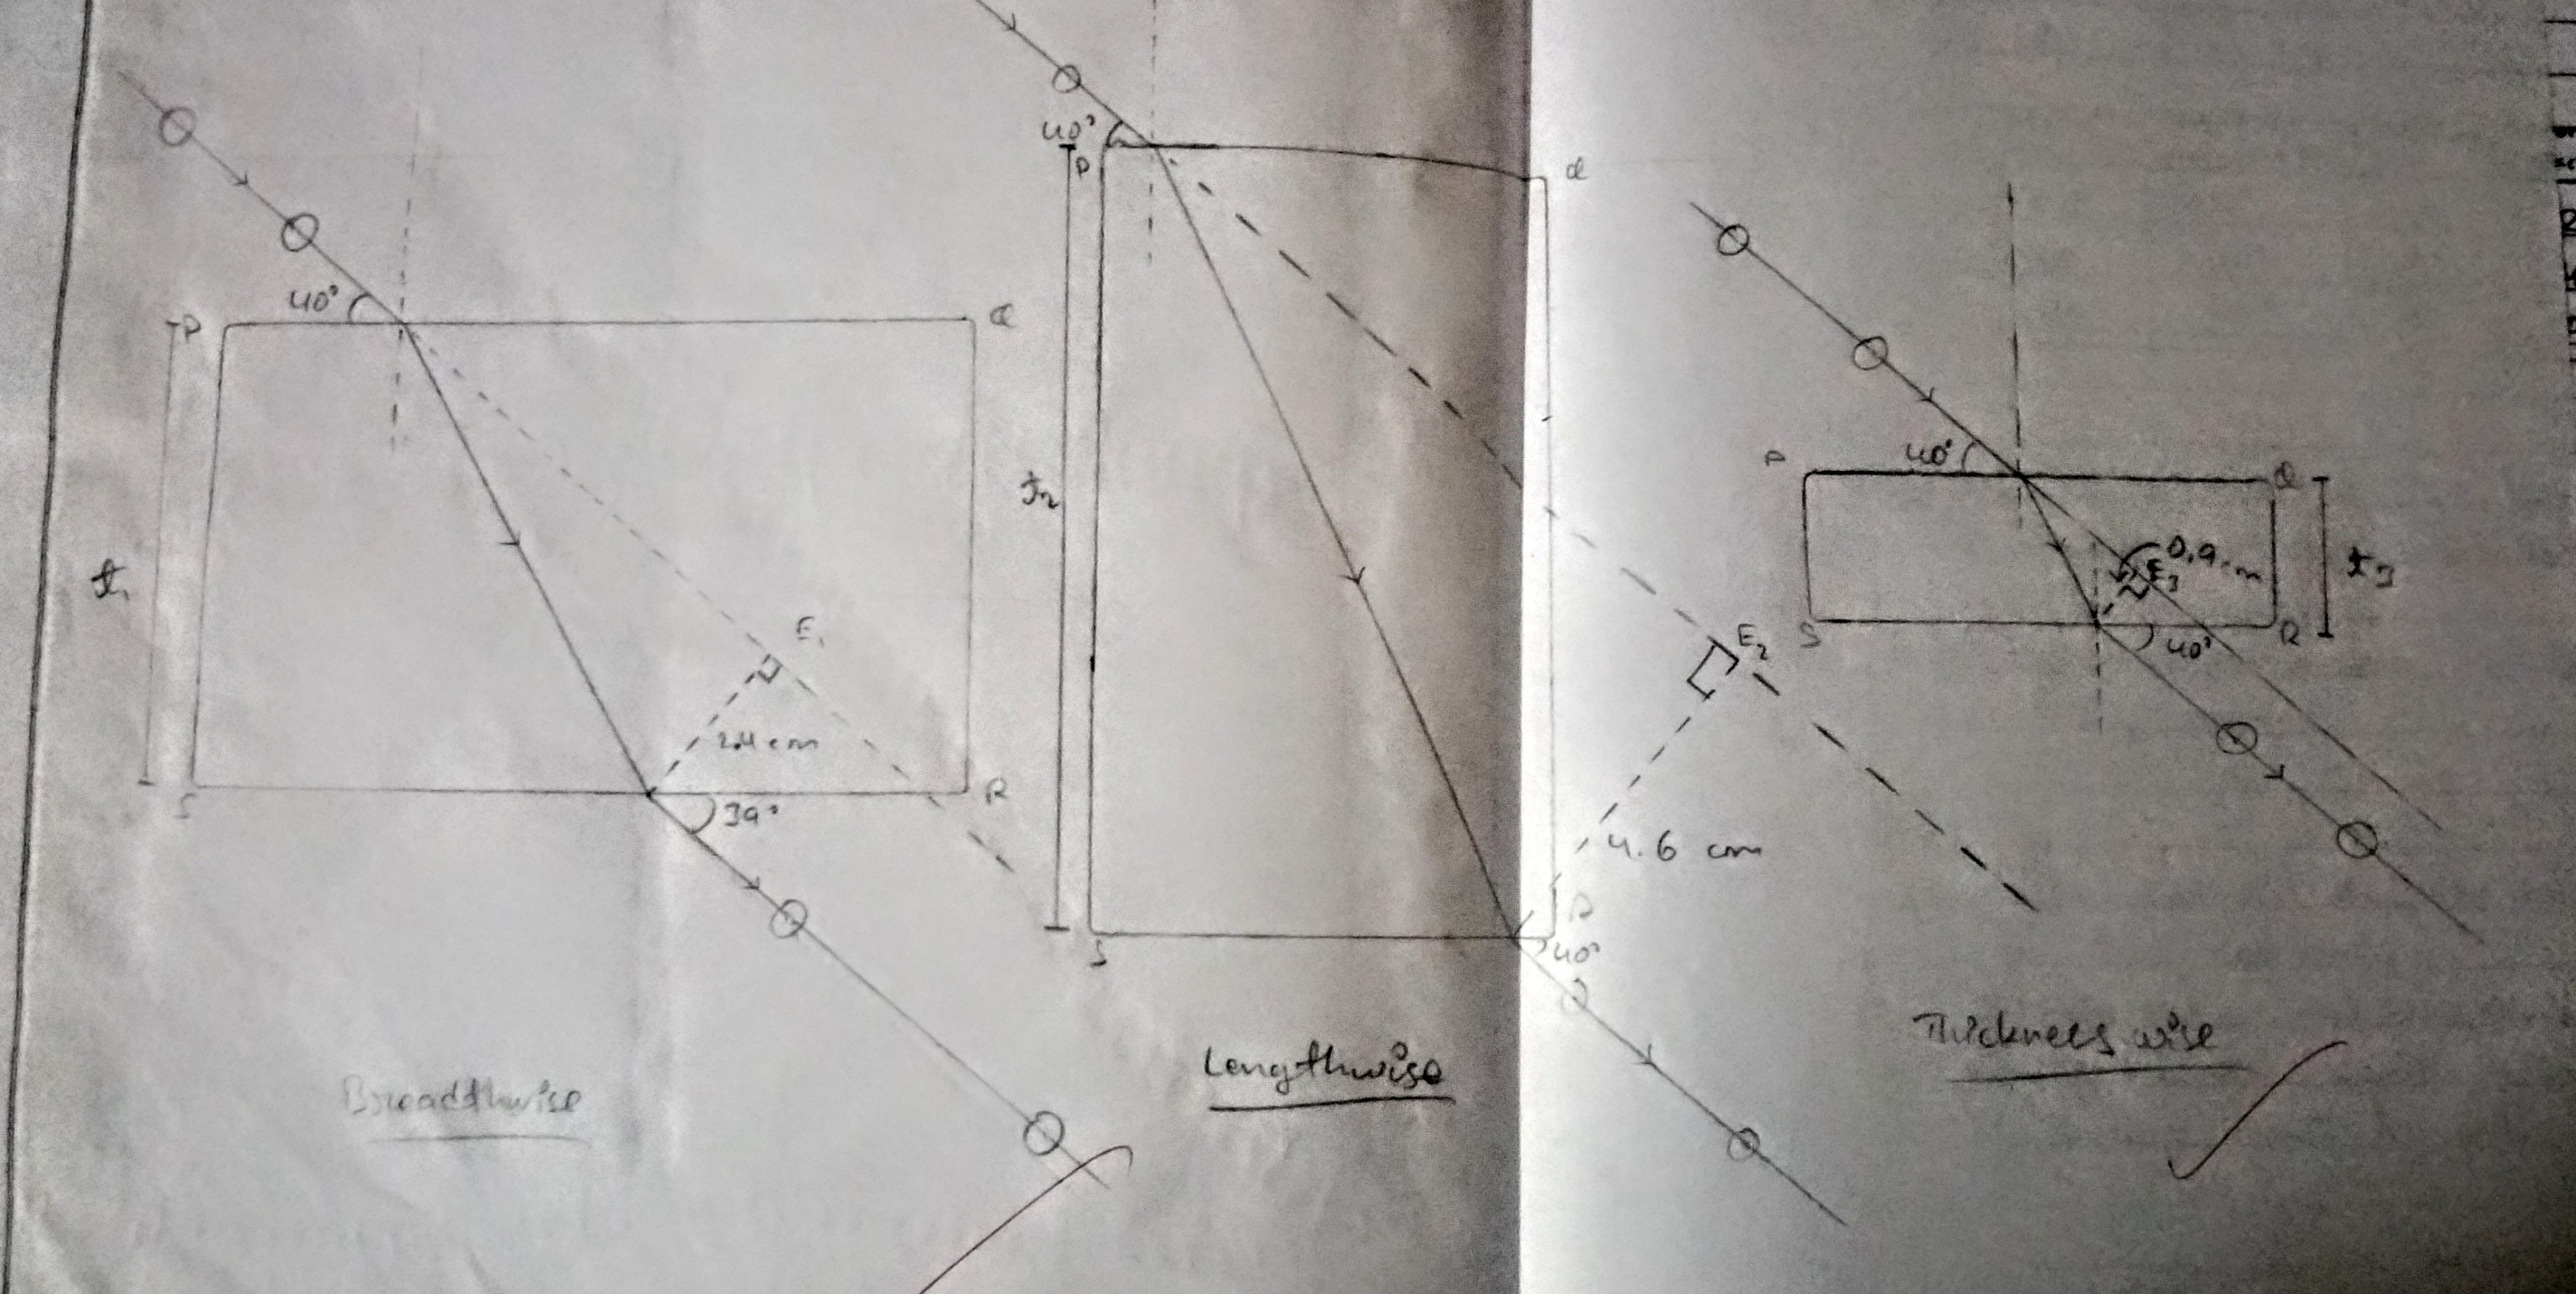 40°
P
Q
t₁
E₁
2.4 cm
S
R
39°
Breadthwise
40°
P
Q
t₂
E₂
4.6 cm
R
S
40°
Lengthwise
40°
P
Q
0.9 cm
E₃
t₃
S
R
40°
Thickness wise